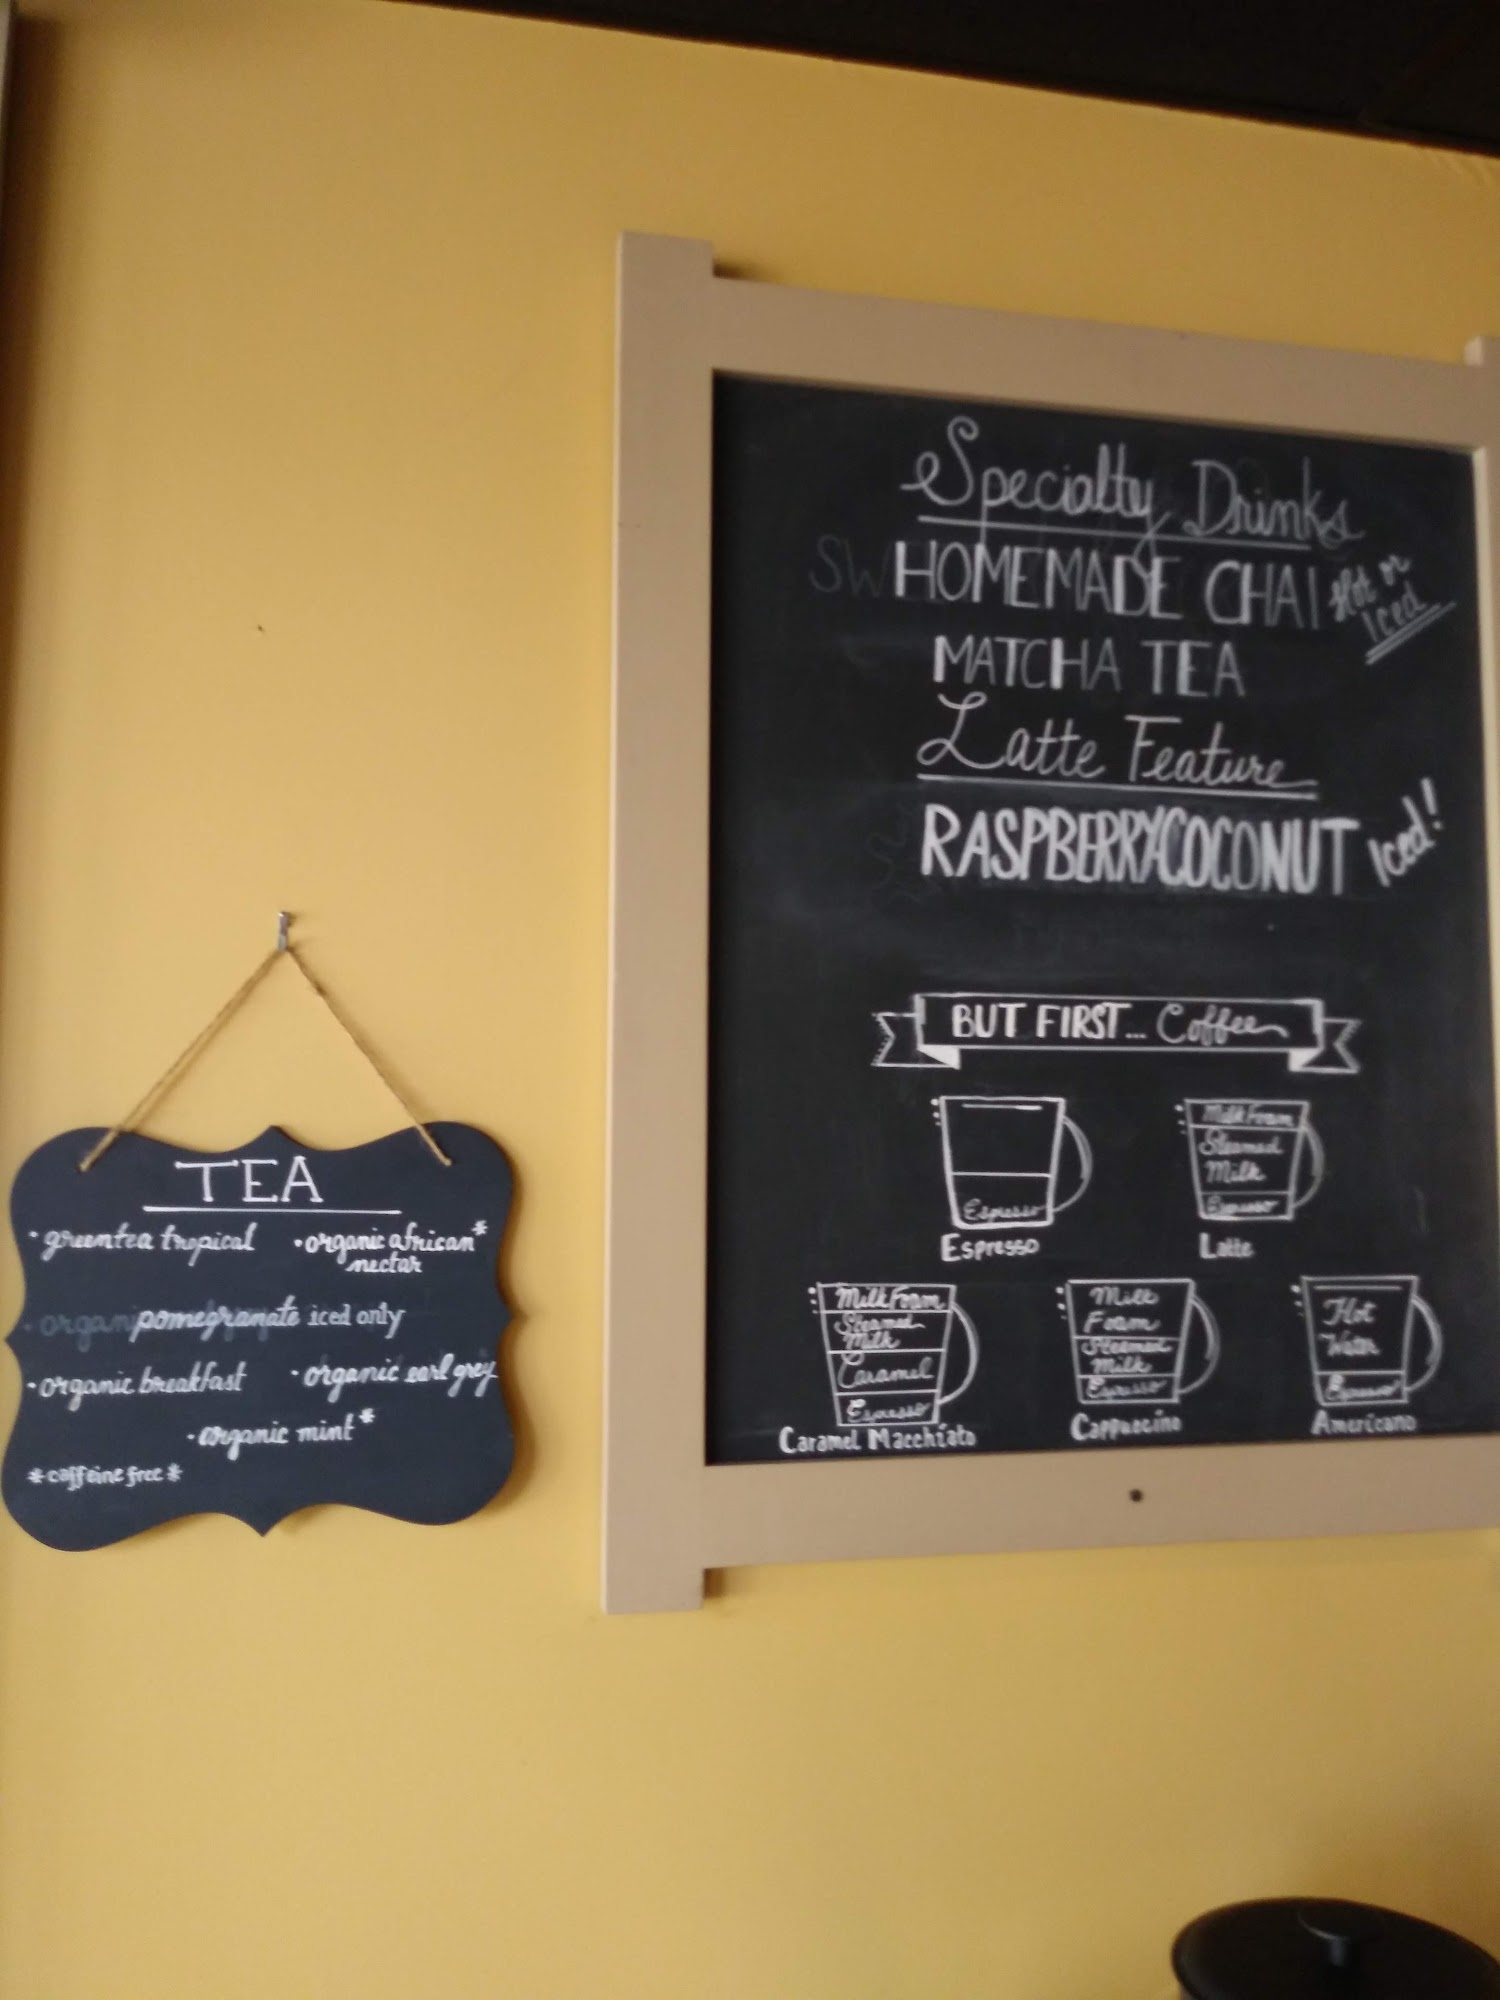 TEA
• green tea tropical
• organic african*
nectar
pomegranate iced only
• organic breakfast
• organic earl grey
• organic mint*
*caffeine free*
Specialty Drinks
HOMEMADE CHAI Hot or
Iced
MATCHA TEA
Latte Feature
RASPBERRY COCONUT Iced!
BUT FIRST... Coffee
Espresso
Espresso
Milk Foam
Steamed
Milk
Espresso
Latte
Milk Foam
Steamed
Milk
Caramel
Espresso
Caramel Macchiato
Milk
Foam
Steamed
Milk
Espresso
Cappuccino
Hot
Water
Espresso
Americano